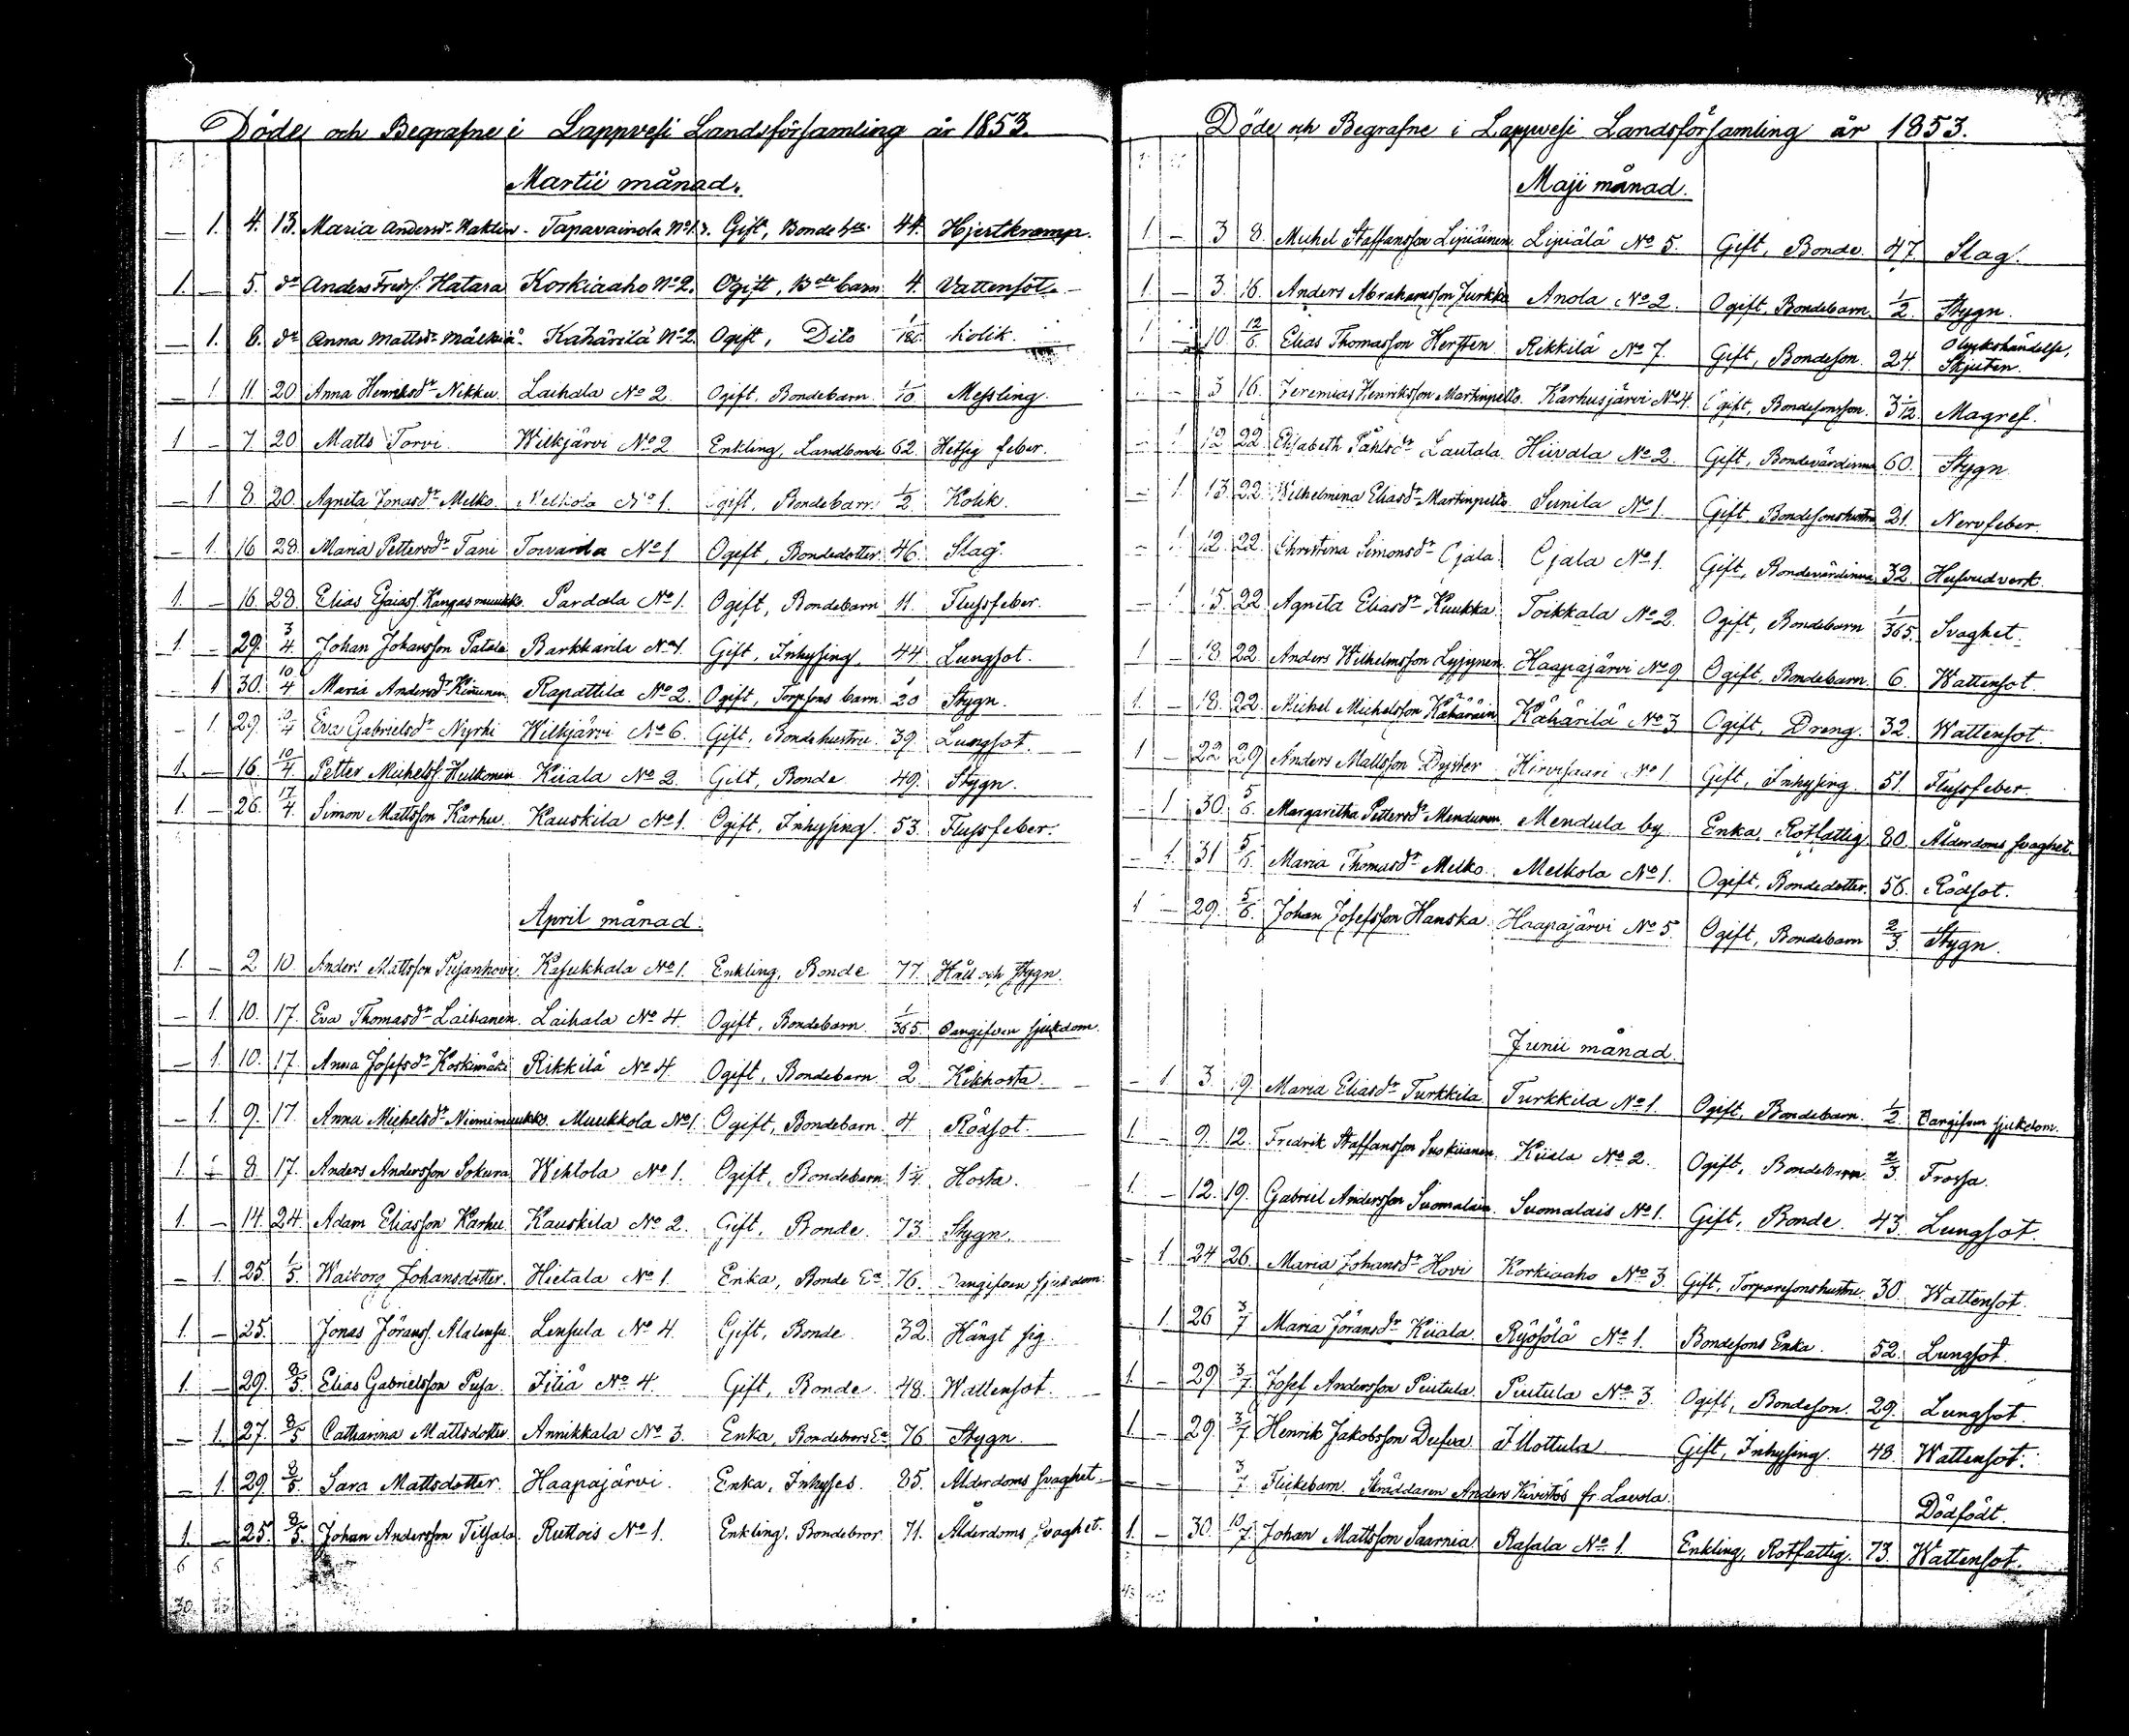 Döde och Begrafne i Lappvesi Landsförsamling år 1853.
Martii månad.
— 1. 4. 13. Maria Andersdr Raktin. Tapavainola No 1. Gift, Bonde hu. 44. Hjertkramp.
1. — 5. do Anders Fredrs. Hatara Korkiaaho No 2. Ogift, Bde barn 4. Vattensot.
— 1. 8. do Anna Mattsdr Mälkiä. Kähärilä No 2. Ogift, Dito Kolik.
— 1. 11. 20 Anna Henriksdr Nikku. Laihala No 2. Ogift, Bondebarn. 1/10 Messling.
1 — 7. 20 Matts Torvi. Wilkjärvi No 2 Enkling, Landbonde 62. Hetsig feber.
— 1 8. 20. Agneta Jonasdr Melko. Melkola No 1. Ogift, Bondebarn. 1/2 Kolik.
— 1. 16 28. Maria Pettersdr Tani Torvarda No 1 Ogift, Bondedotter. 46. Slag.
1. — 16. 28. Elias Esaiass. Kangasmuukko. Pardala No 1. Ogift, Bondebarn 11. Flussfeber.
1. — 29. 3/4. Johan Johansson Patala Barkkarila No 1. Gift, Inhysing, 44. Lungsot.
— 1 30. 10/4 Maria Andersdr Kinnunen Rapattila No 2. Ogift, Torpsons barn 1/20 Stygn.
— 1. 29. 10/4 Eva Gabrielsdr Nyrhi Wilkjärvi No 6. Gift, Bondehustru. 39. Lungsot.
1. — 16. 10/4. Petter Michelss. Hulkonen Kiiala No 2. Gift, Bonde 49. Stygn.
1. — 26. 17/4. Simon Mattsson Karhu. Kauskila No 1. Ogift, Inhysing. 53. Flussfeber.
April månad.
1. — 2 10. Anders Mattsson Pusanhovi. Kasukkala No 1. Enkling, Bonde 77. Håll och Stygn.
— 1. 10. 17. Eva Thomasdr Laihanen. Laihala No 4. Ogift, Bondebarn. 1/365. Oangifven sjukdom.
— 1. 10. 17. Anna Josefsdr Koskimäki Rikkilä No 4 Ogift, Bondebarn. 2. Kikhosta.
— 1. 9. 17. Anna Michelsdr Niemimuukko. Muukkola No 1. Ogift, Bondebarn. 4 Rödsot.
1. — 8. 17. Anders Andersson Sokura Wihtola No 1. Ogift, Bondebarn. 1 1/4. Hosta.
1. — 14. 24. Adam Eliasson Karhu. Kauskila No 2. Gift, Bonde. 73. Stygn.
— 1. 25. 1/5. Walborg Johansdotter. Hietala No 1. Enka, Bonde Ea 76. Oangifven sjukdom.
1. — 25. Jonas Jöranss. Alalensu. Lensula No 4. Gift, Bonde. 32. Hängt sig.
1. — 29. 8/5. Elias Gabrielsson Pusa. Iitiä No 4. Gift, Bonde. 48. Wattensot.
— 1. 27. 8/5 Catharina Mattsdotter. Annikkala No 3. Enka, Bondebrors Ea 76 Stygn.
— 1. 29 8/5. Sara Mattsdotter. Haapajärvi. Enka, Inhyses. 85. Ålderdoms svaghet.
1. — 25. 8/5. Johan Andersson Tilsala. Ruttois No 1. Enkling, Bondebror. 71. Ålderdoms svaghet.
Döde och Begrafne i Lappvesi Landsförsamling år 1853.
Maji månad.
1. — 3 8. Michel Staffansson Lipiäinen. Lipiälä No 5. Gift, Bonde. 47. Slag.
1. — 3. 16. Anders Abrahamsson Jurkka Anola No 2. Ogift, Bondebarn. 1/2. Stygn.
1 — 10. 12/6. Elias Thomasson Hersten. Rikkilä No 7. Gift, Bondeson. 24. Olyckshändelse, Skjuten.
— 3 16. Jeremias Henriksson Martinpelto. Karhusjärvi No 4. Ogift, Bondesonsson. 3/12. Magref.
— 1 12 22. Elisabeth Påhlsdr Lautala. Hiivala No 2. Gift, Bondevärdinna 60. Stygn
— 1. 13. 22. Wilhelmina Eliasdr Martinpelto Sunila No 1. Gift, Bondesonshustru 21. Nervfeber.
— 1. 12. 22. Christina Simonsdr Ojala. Ojala No 1. Gift, Bondevärdinna 32. Hufvudverk.
— 1 15. 22. Agneta Eliasdr Kuukka. Toikkala No 2. Ogift, Bondebarn 1/365. Svaghet.
1 — 18 22. Anders Wilhelmsson Lyjynen. Haapajärvi No 9 Ogift, Bondebarn. 6. Wattensot.
1. — 18. 22. Michel Michelsson Kähäräin Kähärilä No 3 Ogift, Dreng. 32. Wattensot.
1 — 22 29 Anders Mattsson Dyster Hirvisaari No 1 Gift, Inhysing. 51. Flussfeber.
— 1 30. 5/6. Margaretha Pettersdr Mendunen. Mendula by Enka, Rotfattig 80. Ålderdoms svaghet.
— 1. 31 5/6. Maria Thomasdr Melko. Melkola No 1. Ogift, Bondedotter. 56. Rödsot.
1 — 29. 5/6. Johan Josefsson Hanska. Haapajärvi No 5. Ogift, Bondebarn 2/3. Stygn.
Junii månad.
— 1. 3. 19. Maria Eliasdr Turkkila Turkkila No 1. Ogift, Bondebarn. 1/2. Oangifven sjukdom.
1. — 9. 12. Fredrik Staffansson Suskiianen. Kiiala No 2. Ogift, Bondebarn. 2/3. Frossa.
1. — 12. 19. Gabriel Andersson Suomalain. Suomalais No 1. Gift, Bonde 43. Lungsot.
— 1 24 26. Maria Johansdr Hovi Korkiaaho No 3 Gift, Torparesonshustru. 30. Wattensot.
— 1. 26 3/7 Maria Jöransdr Kiiala. Ryösölä No 1. Bondesons Enka. 52. Lungsot.
1. — 29 3/7 Josef Andersson Piutula. Piutula No 3. Ogift, Bondeson. 29. Lungsot.
1. — 29. 3/7. Henrik Jakobsson Dufva. Ilottula Gift, Inhysing. 48. Wattensot.
— — 3/7 Flickebarn. Skräddaren Anders Kivistös fr. Lavola. Dödfödt.
1. — 30. 10/7. Johan Mattsson Saarnia. Rasala No 1. Enkling, Rotfattig. 73. Wattensot.